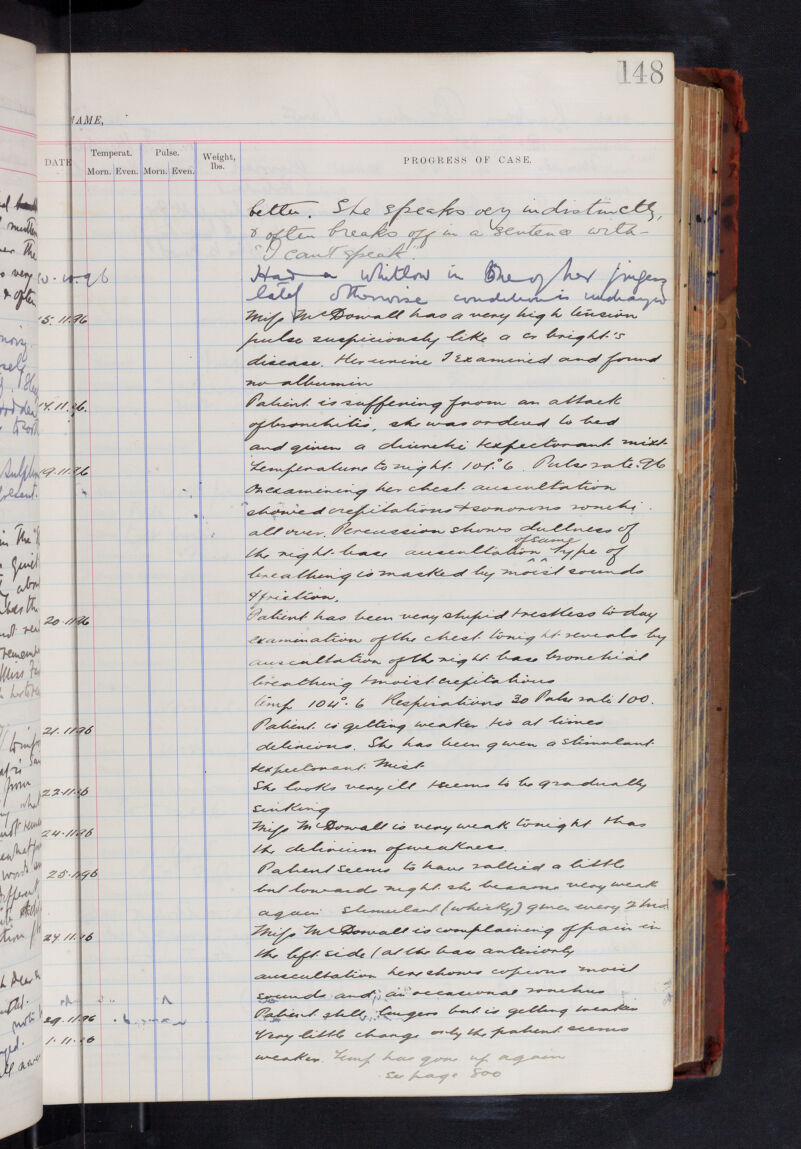 148
NAME,
DATE
Temperat.
Pulse.
Weight, lbs.
PROGRESS OF CASE.
Morn. Even. Morn. Even.
better. She speaks very indistinctly,
& often breaks off in a sentence with -
"I cant speak."
Had a whitlow in One of her fingers
lately otherwise condition is unchanged
5.11.96 Miss McDowall has a very high tension
pulse suspiciously like a bright's
disease. Her urine I examined and found
no albumin
Patient is suffering from an attack
of bronchitis, she was ordered to bed
and given a diuretic & expectorant mixt.
19.11.96 Temperature to night 101°.6. Pulse rate. 96
On examining her chest auscultation
showed crepitations & sonorous ronchi
all over. Percussion shows dullness of
the right base auscultation of same type of
breathing is masked by moist sounds
& friction.
20.11.96 Patient has been very stupid & restless to day
examination of the chest tonight reveals by
auscultation of the right base bronchial
breathing & moist crepitations
temp 104°.6 Respirations 30 Pulse rate 100.
21.11.96 Patient is getting weaker & is at times
delirious. She has been given a stimulant
& expectorant Mist.
22.11.96 She looks very ill & seems to be gradually
sinking
24.11.96 Miss McDowall is very weak tonight & has
the delirium of weakness.
25.11.96 Patient seems to have rallied a little
but towards night she became very weak
again stimulant (whisky) given every 2 hrs
Miss McDowall is complaining of pain in
the left side (at the base anteriorly
auscultation here shows copious moist
sounds and an occasional ronchus
29.11.96 Patient still lingers but is getting weaker
Very little change only the patient seems
weaker. Temp has gone up again
See page 800